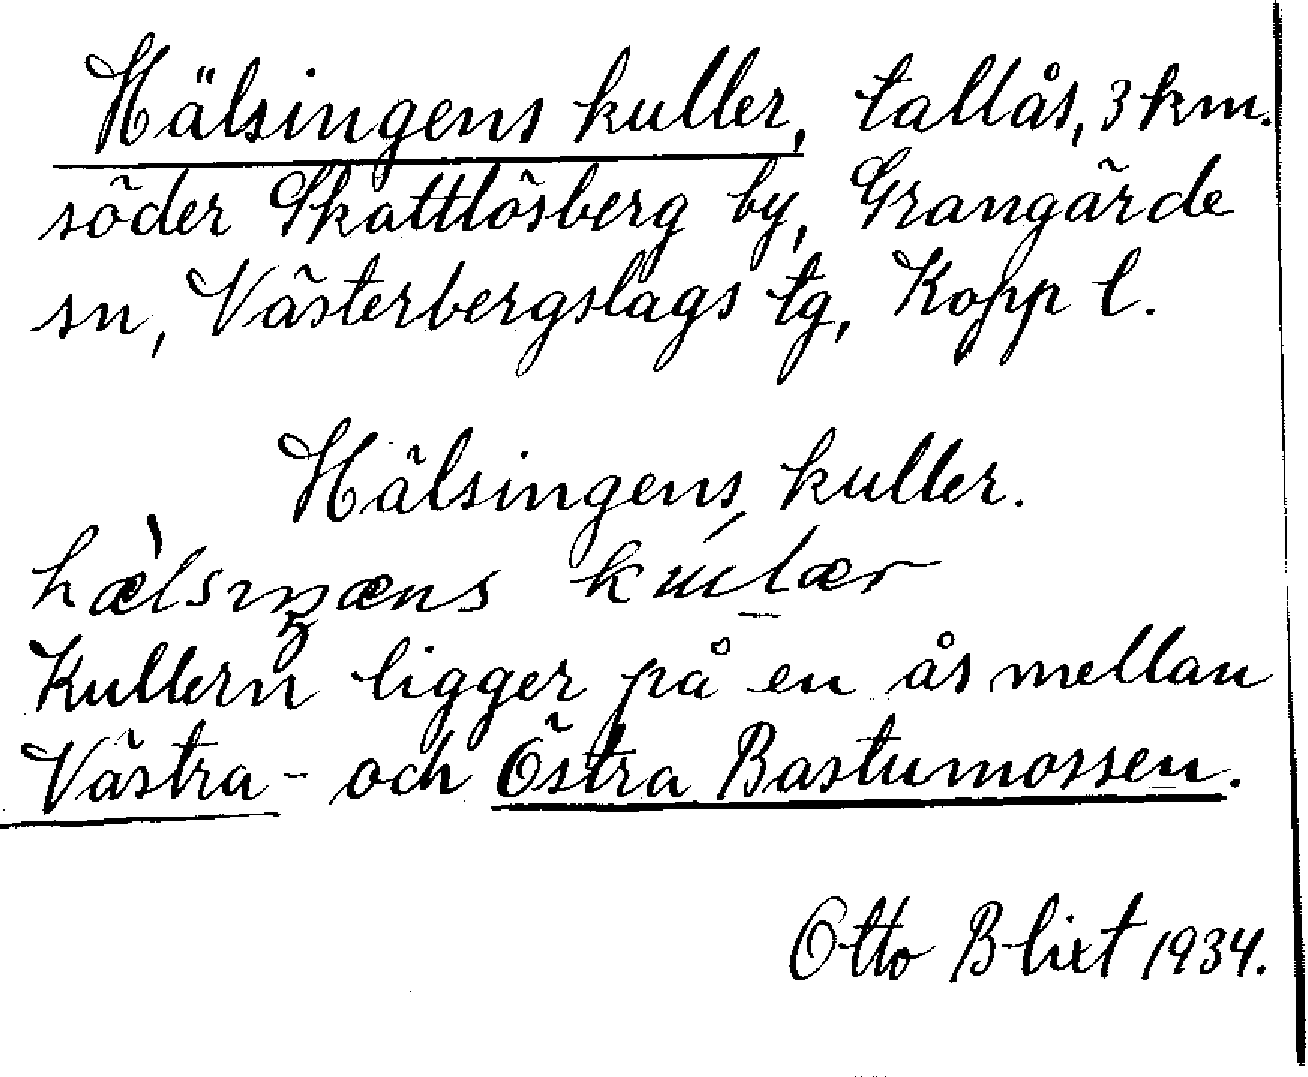 Hälsingens kuller, tallås, 3 km.
söder Skattlösberg by, Grangärde
sn, Västerbergslags tg, Kopp l.
Hälsingens kuller.
Kullern ligger på en ås mellan
Västra - och Östra Bastumossen.
Otto Blixt 1934.